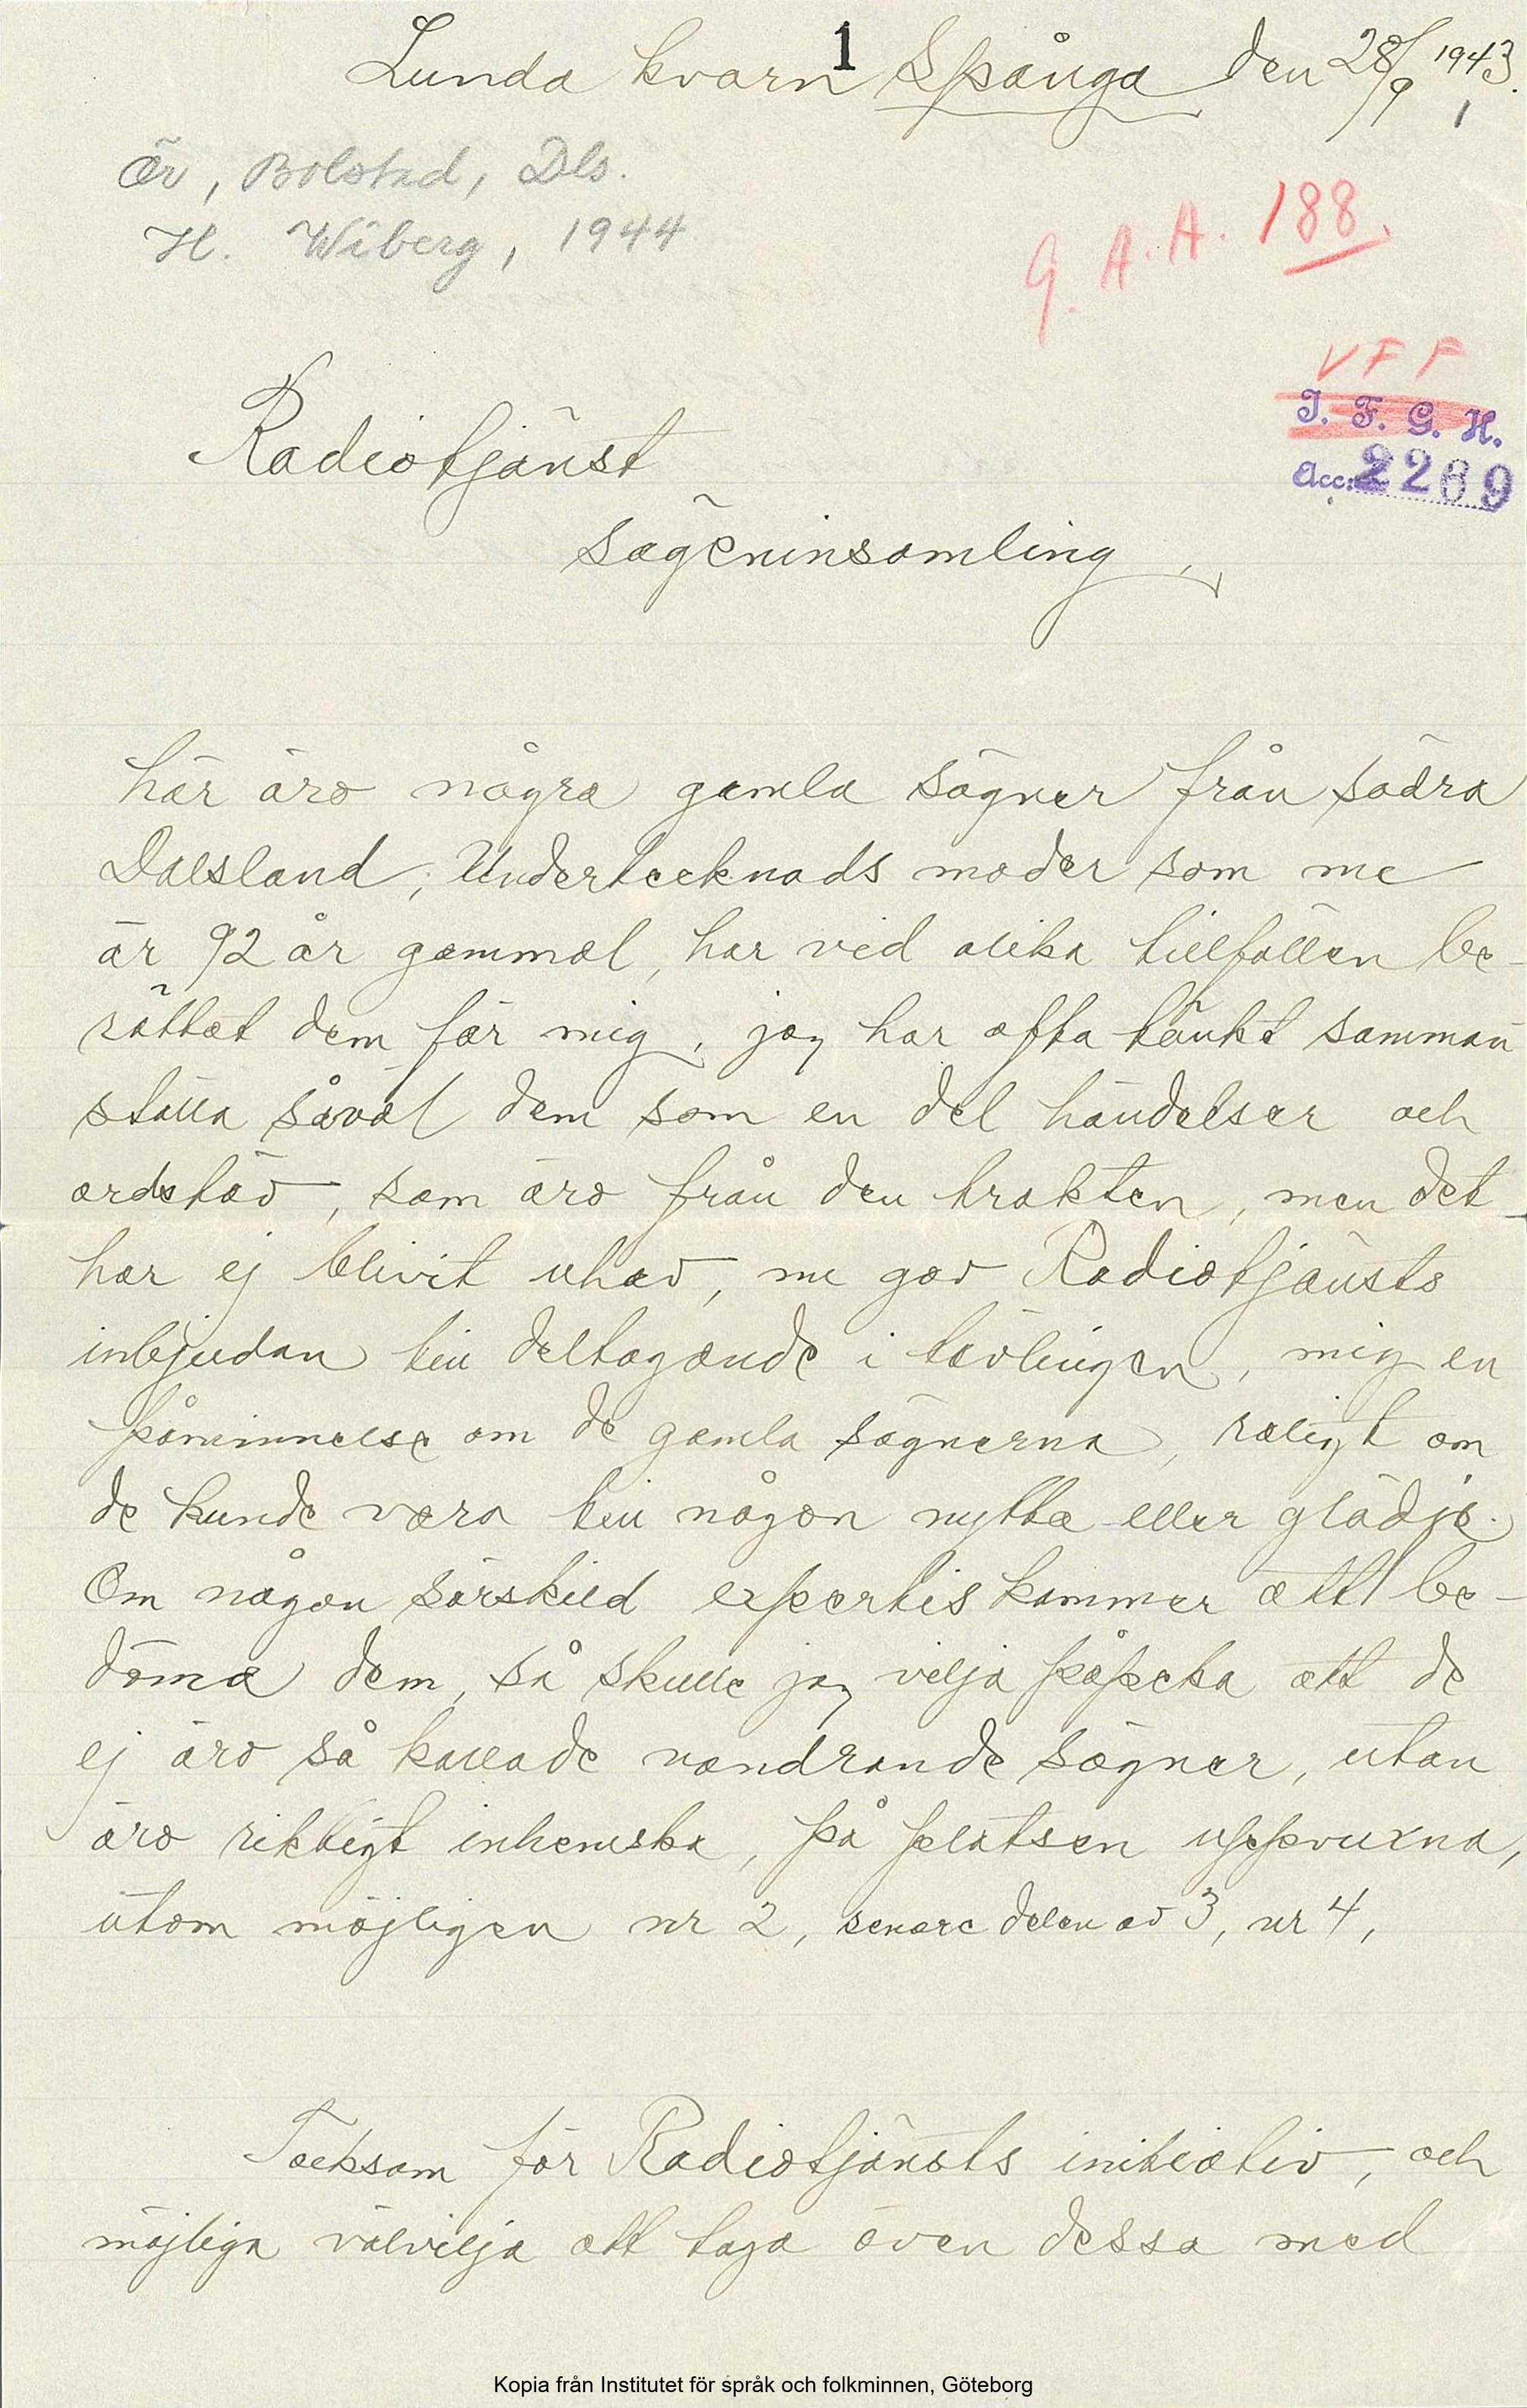 1
Lunda kvarn Spånga den 28/9 1943.
1
Ör, Bolstad, Dls.
H. Wiberg, 1944
G. A. A. 188.
VFF
I. F. G. H.
Acc: 2269
Radiotjänst
sägeninsamling,
här äro några gamla sägner från södra
Dalsland, Undertecknads moder som nu
är 92 år gammal, har vid olika tillfällen be-
rättat dem för mig, jag har ofta tänkt samman
ställa såväl dem som en del händelser och
ordstäv, som äro från den trakten, men det
har ej blivit utav, nu gav Radiotjänsts
inbjudan till deltagande i tävlingen, mig en
påminnelse om de gamla sägnerna, roligt om
de kunde vara till någon nytta eller glädje.
Om någon särskild expertis kommer att be-
döma dem, så skulle jag vilja påpeka att de
ej äro så kallade vandrande sägner, utan
äro riktigt inhemska, på platsen uppvuxna,
utom möjligen nr 2, senare delen av 3, nr 4,
Tacksam för Radiotjänsts initiativ, och
möjliga välvilja att taga även dessa med
Kopia från Institutet för språk och folkminnen, Göteborg